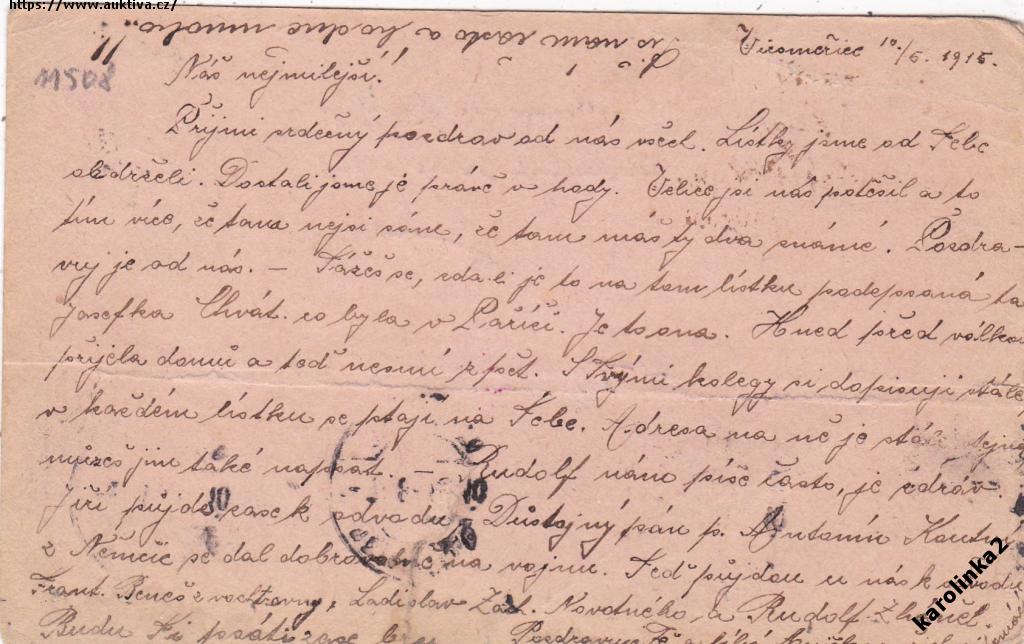 https://www.auktiva.cz/
nám často a hodně mnoho.
10./6. 1915.
11508
Náš nejmilejší!
Přijmi srdečný pozdrav od nás všech. Lístky jsme od Tebe
obdrželi. Dostali jsme je právě v hody. Velice jsi nás potěšil a to
tím více, že tam nejsi sám, že tam máš ty dva známé. Pozdra-
vuj je od nás. — Tážeš se, zda-li je to na tom lístku podepsaná ta
Josefka Chvát. co byla v Paříži. Je to ona. Hned před válkou
přijela domů a teď nesmí zpět. S Tvými kolegy si dopisuji stále,
v každém lístku se ptají na Tebe. Adresa na ně je
můžeš jim také napsat. — Rudolf nám píše často, je zdráv.
Jiří půjde zase k odvodu. Důstojný pán p. Antonín
z Němčic se dal dobrovolně na vojnu. Teď půjdou u nás k odvodu
Frant. Beneš Ladislav Novotného a Rudolf
Budu Ti psáti zase Pozdravuje Tě a líbá
karolinka2